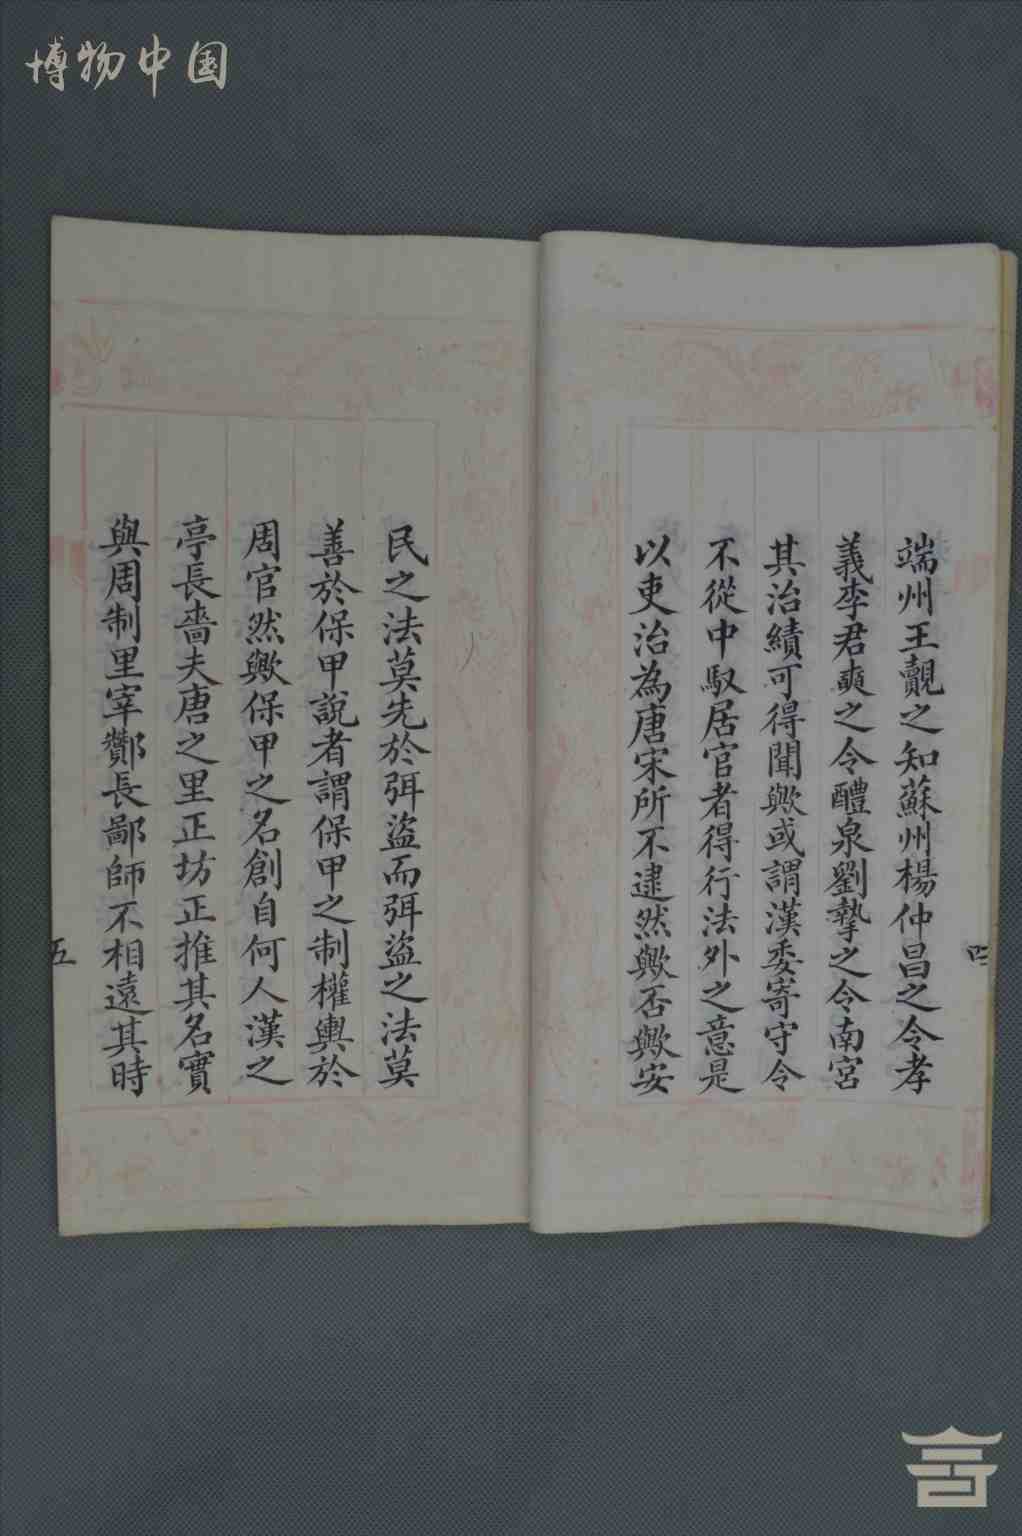 博物中国
端州王覿之知蘇州楊仲昌之令孝
義李君奭之令醴泉劉摯之令南宮
其治績可得聞歟或謂漢委寄守令
不從中馭居官者得行法外之意是
以吏治為唐宋所不逮然歟否歟安
四
民之法莫先於弭盜而弭盜之法莫
善於保甲說者謂保甲之制權輿於
周官然歟保甲之名創自何人漢之
亭長嗇夫唐之里正坊正推其名實
與周制里宰酇長鄙師不相遠其時
五